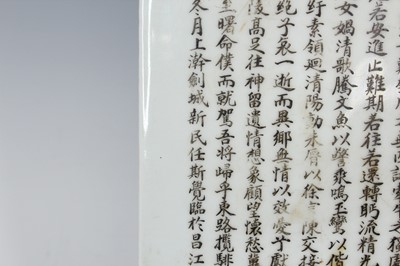 若安進止難期若往若還轉眄流精光
女媧清歌騰文魚以警乘鳴玉鸞以偕
紆素領迴清陽動朱脣以徐言陳交接
絶兮哀一逝而異鄉無情以效愛兮獻
陵高足往神留遺情想象顧望懷愁冀
曙命僕而就駕吾將歸乎東路攬騑
冬月上澣創城新民任斯覺臨於昌江